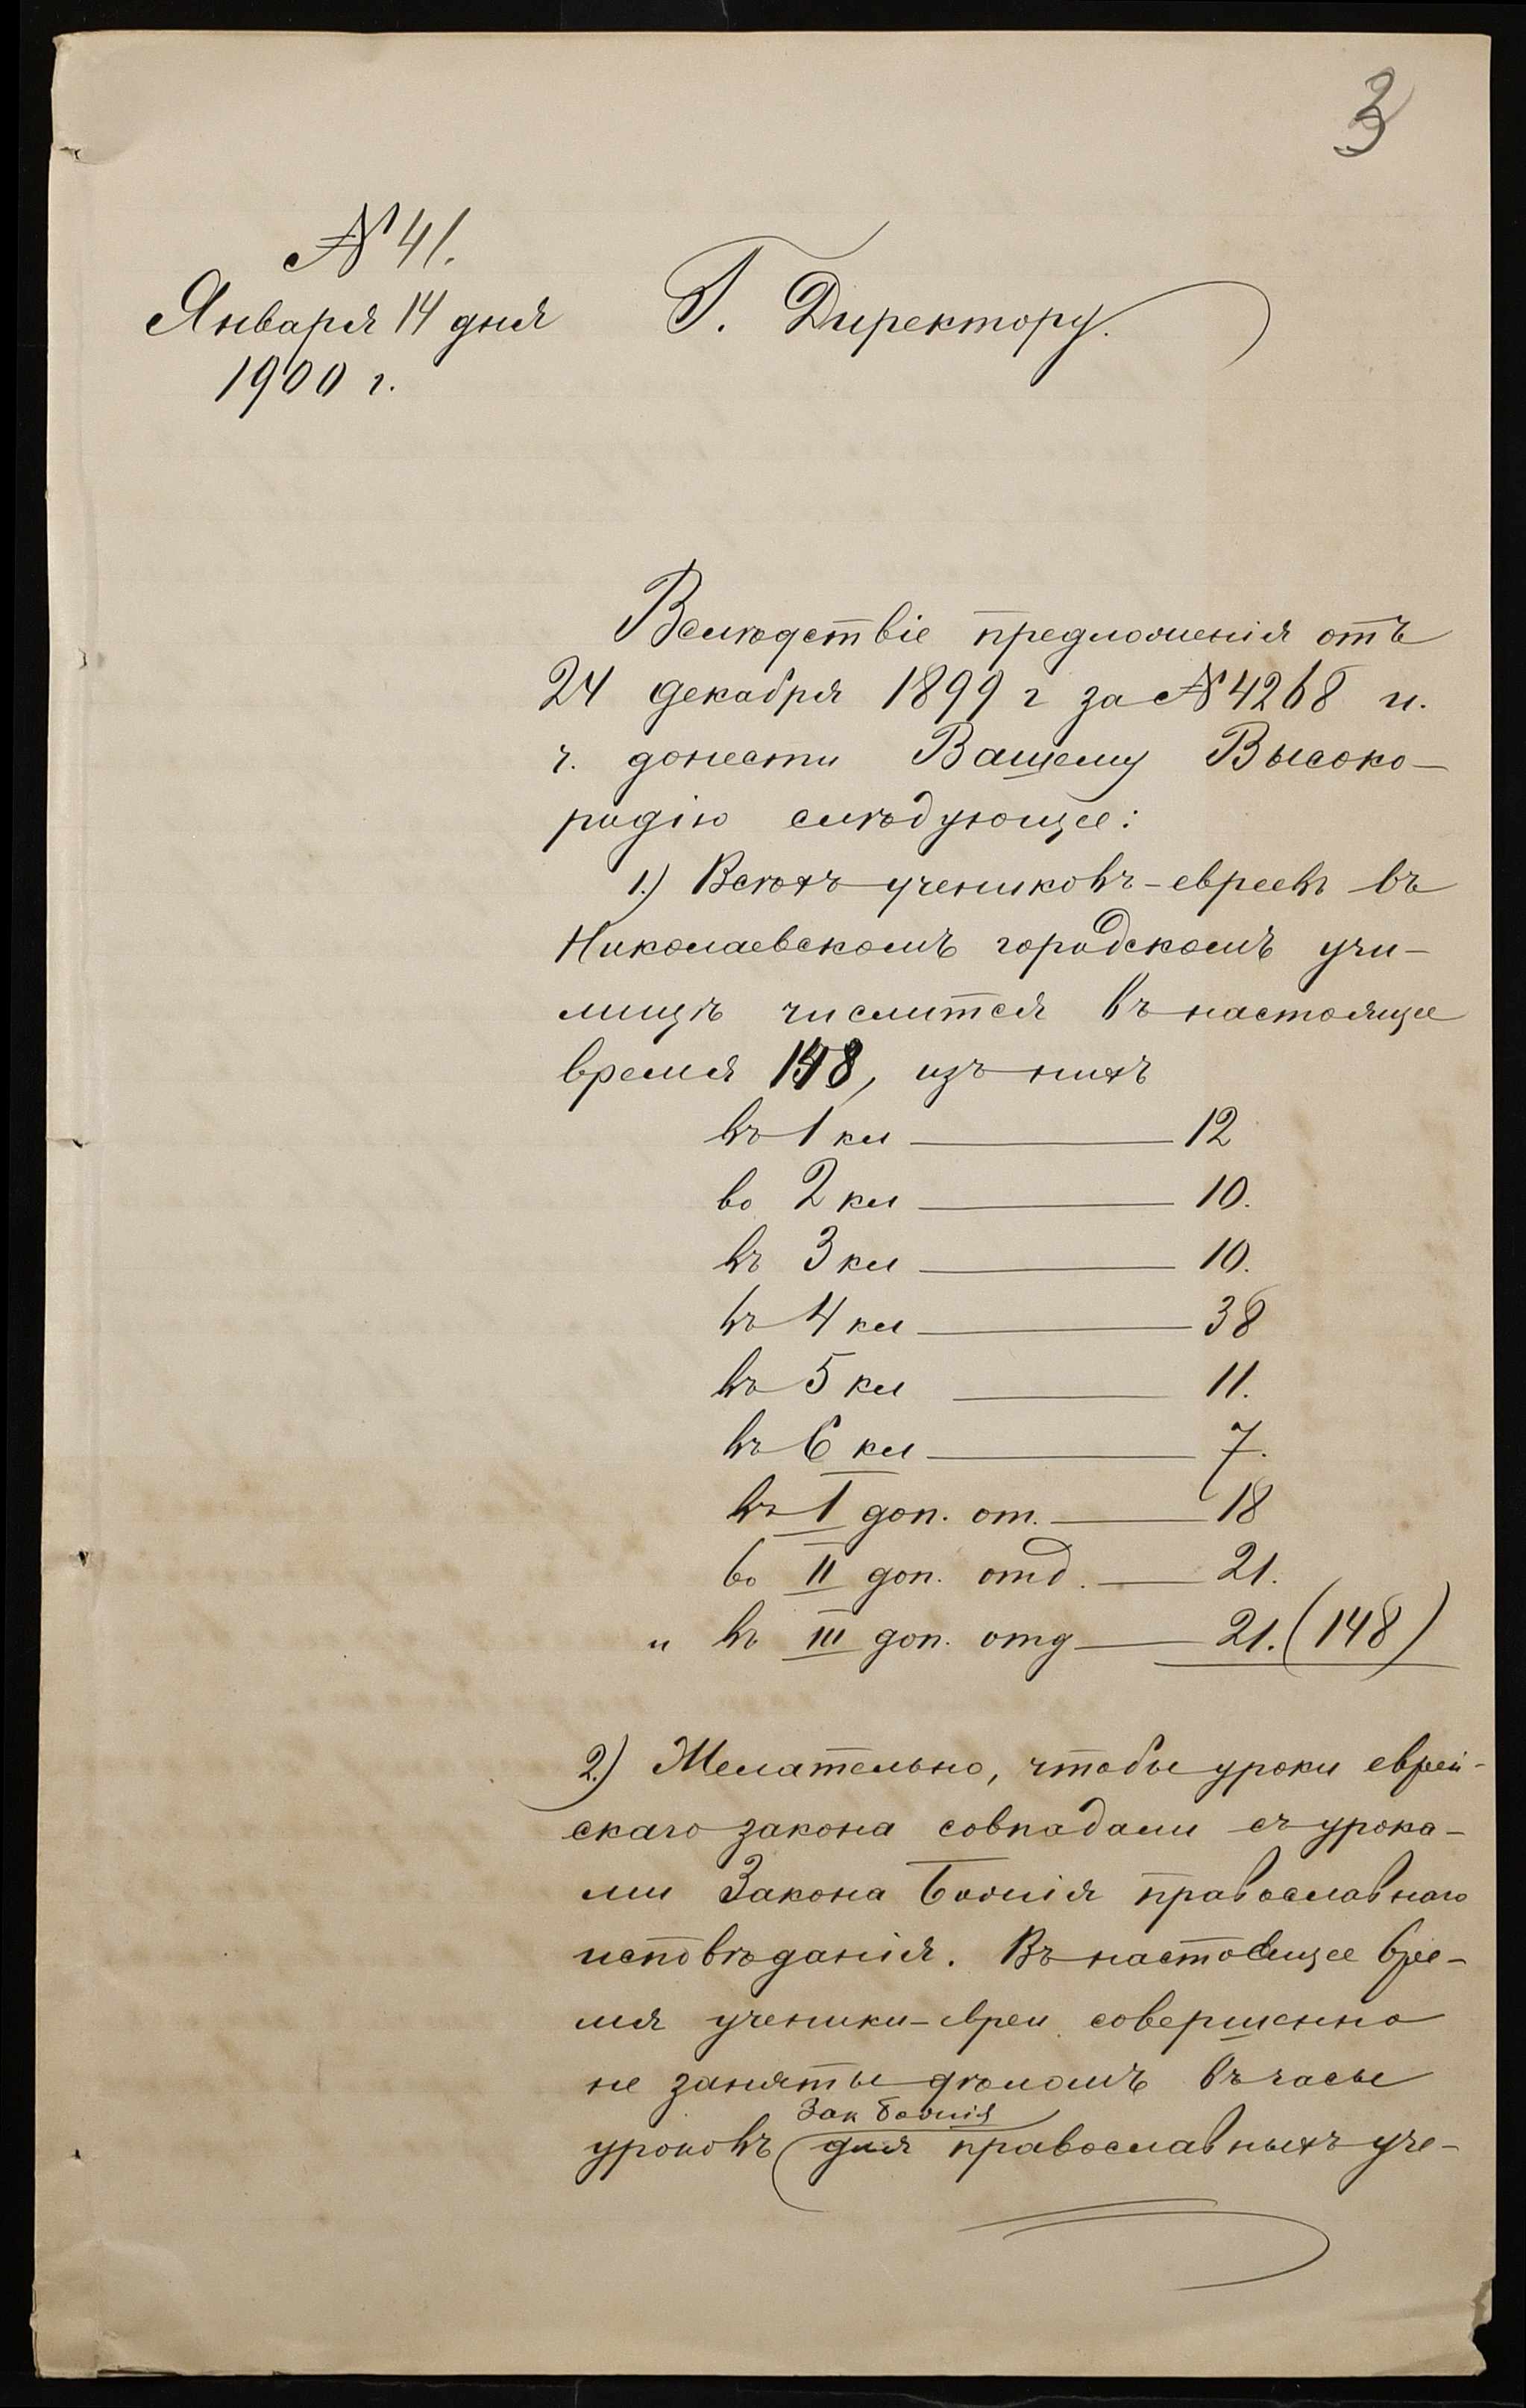 3
№ 41.
Января 14 дня
1900 г.
Г. Директору.
Вслѣдствіе предложенія отъ
24 декабря 1899 г за № 4268 и.
ч. донести Вашему Высоко-
родію слѣдующее:
1.) Всѣхъ учениковъ-евреевъ въ
Николаевскомъ городскомъ учи-
лищѣ числится въ настоящее
время 148, изъ нихъ
въ 1 кл — 12
во 2 кл — 10.
въ 3 кл — 10.
въ 4 кл — 38
въ 5 кл — 11.
въ 6 кл — 7.
въ I доп. от. — 18
во II доп. отд. — 21.
и въ III доп. отд — 21. (148)
2.) Желательно, чтобы уроки еврей-
скаго закона совпадали съ урока-
ми Закона Божія православнаго
исповѣданія. Въ настоящее вре-
мя ученики-евреи совершенно
не заняты дѣломъ въ часы
Зак Божія
уроковъ для православныхъ уче-